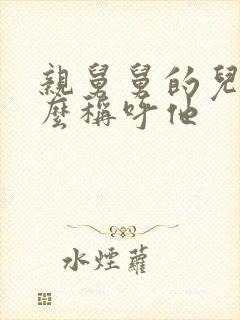 親舅舅的兒
麼稱呼他
水煙蘿